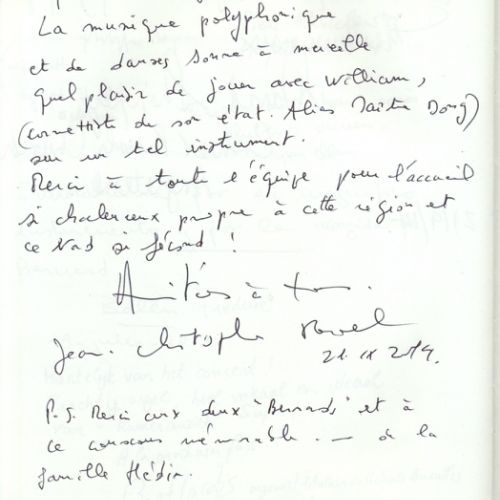 La musique polyphonique
et de danses sonne à merveille
quel plaisir de jouer avec William,
(cornettiste de son état. Alias Maître Dong)
sur un tel instrument.
Merci à toute l'équipe pour l'accueil
si chaleureux propre à cette région et
ce Nord si fécond !
Amitiés à tous.
Jean-Christophe Revel
21 IX 2014.
P.S. Merci aux deux "Bernards" et à
ce couscous mémorable. — de la
famille Hédin.